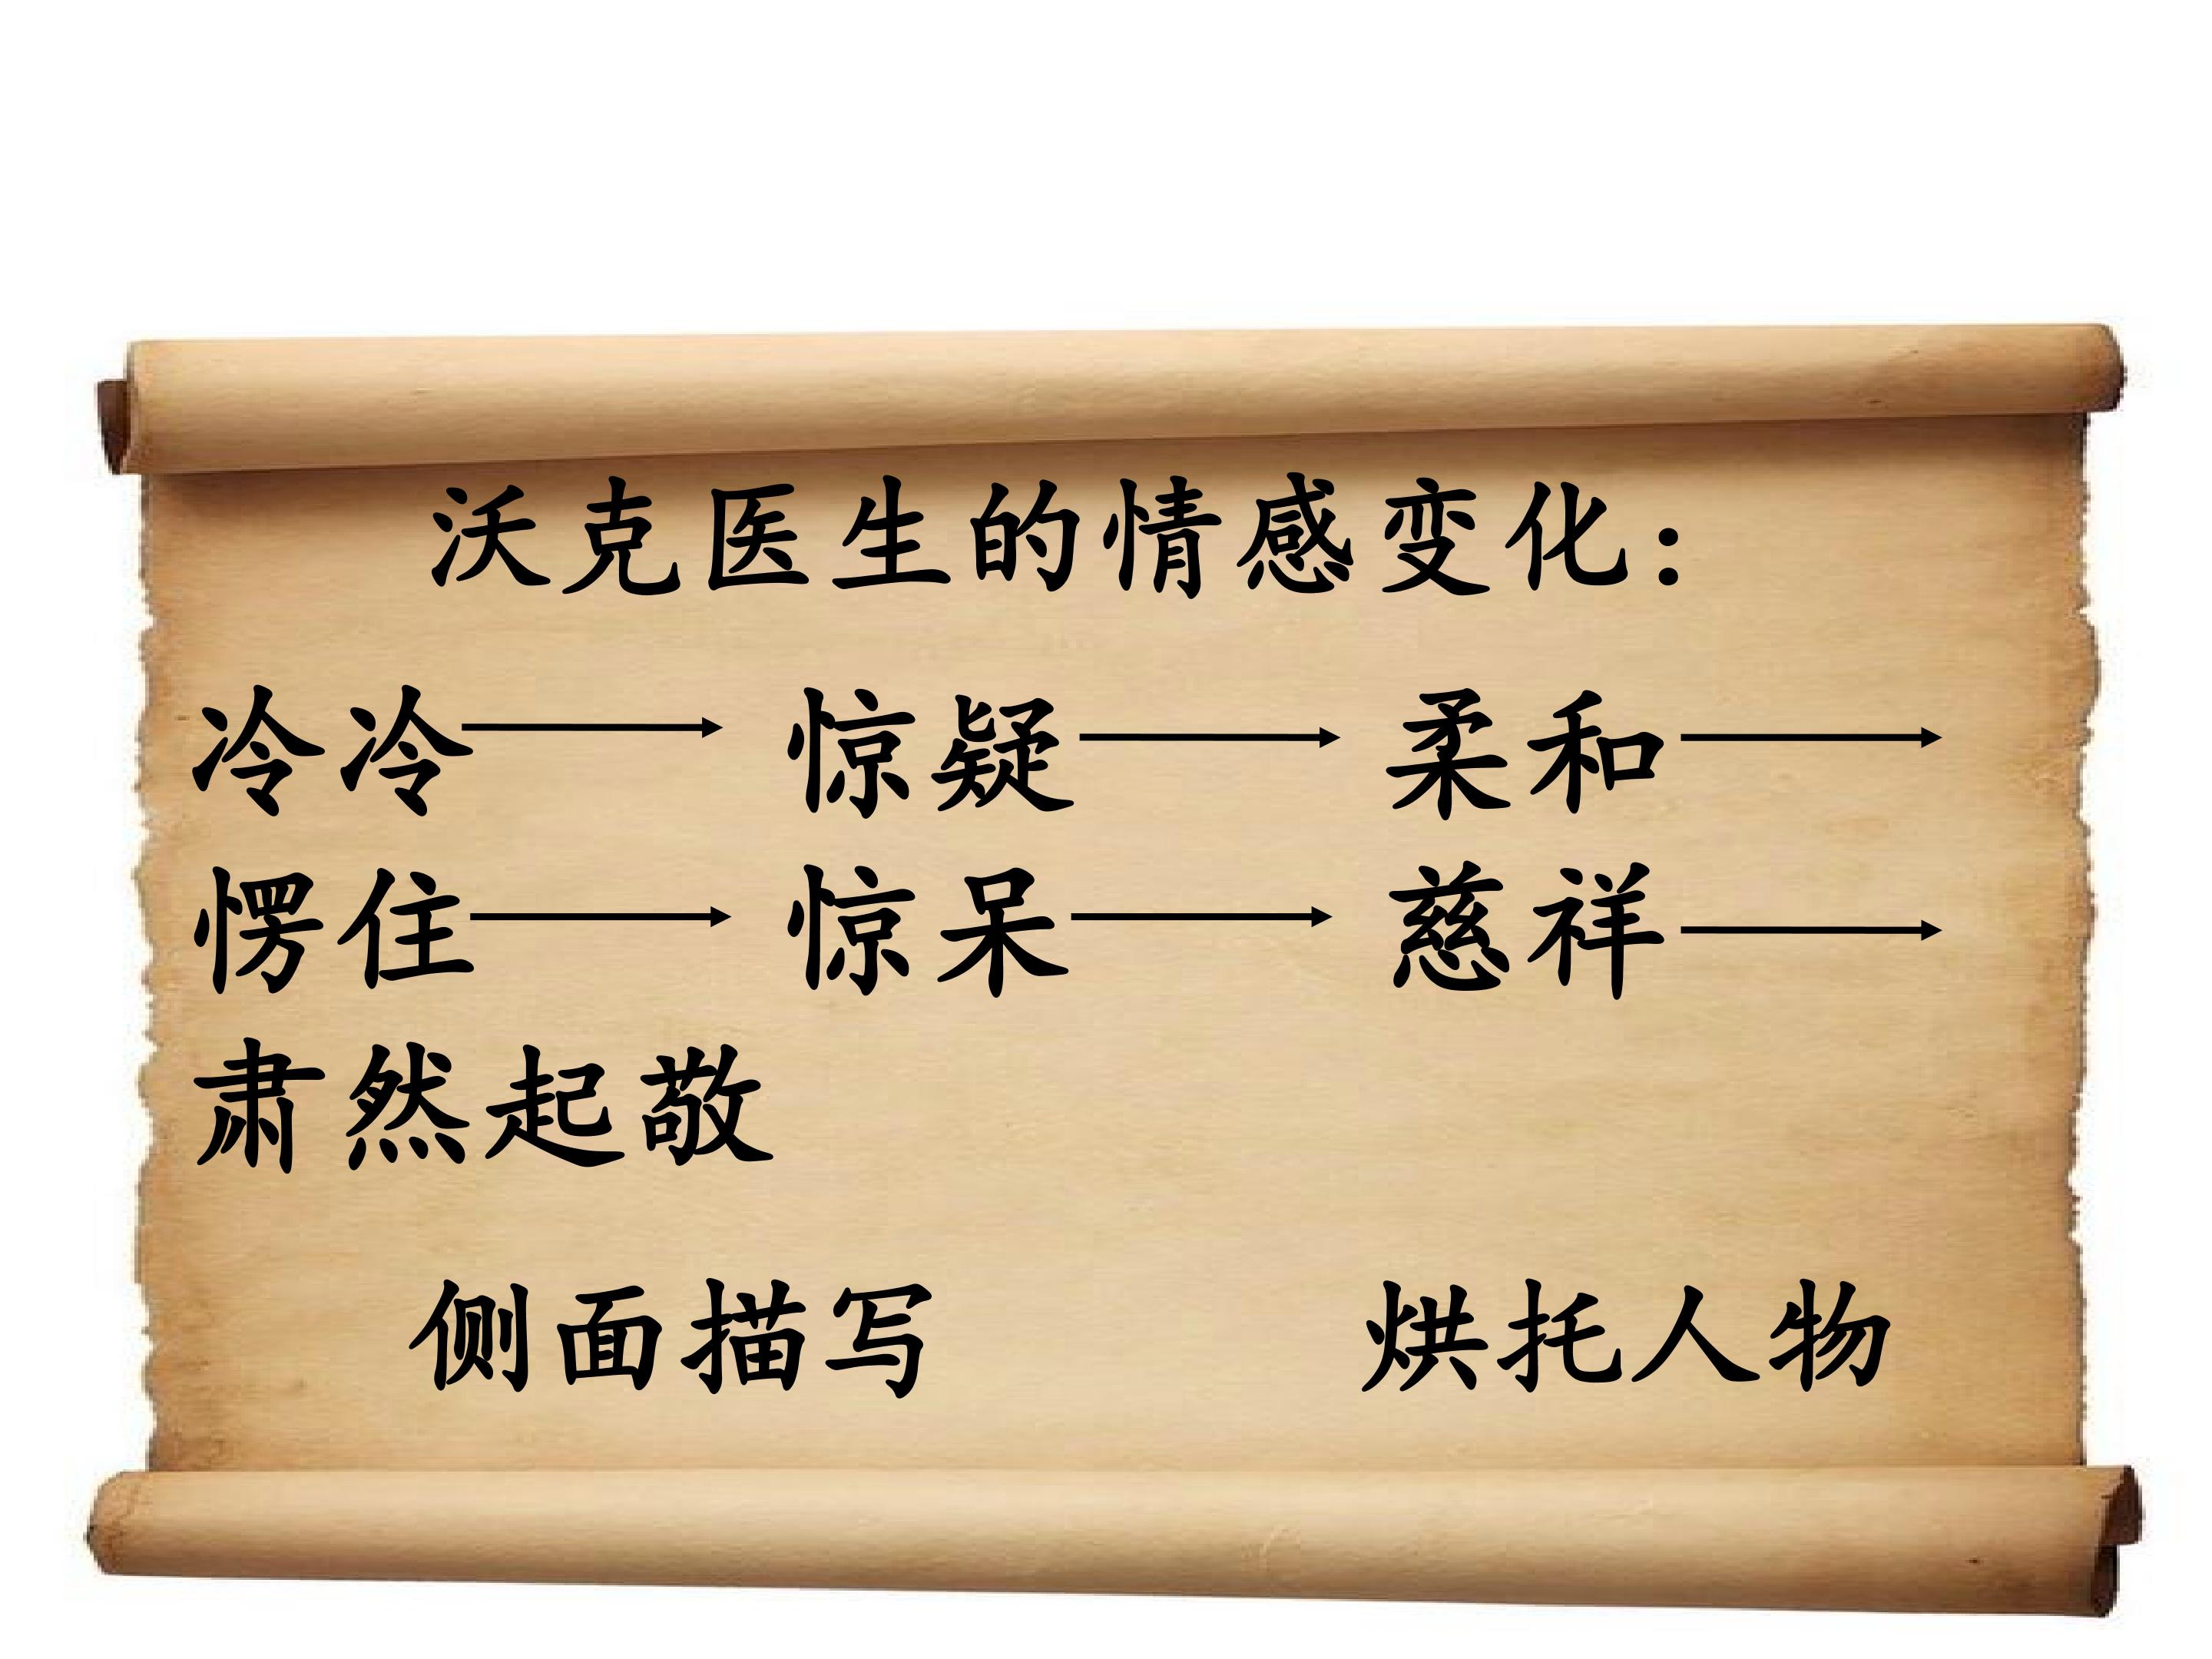 沃克医生的情感变化：
冷冷 → 惊疑 → 柔和 →
愣住 → 惊呆 → 慈祥 →
肃然起敬
侧面描写 烘托人物